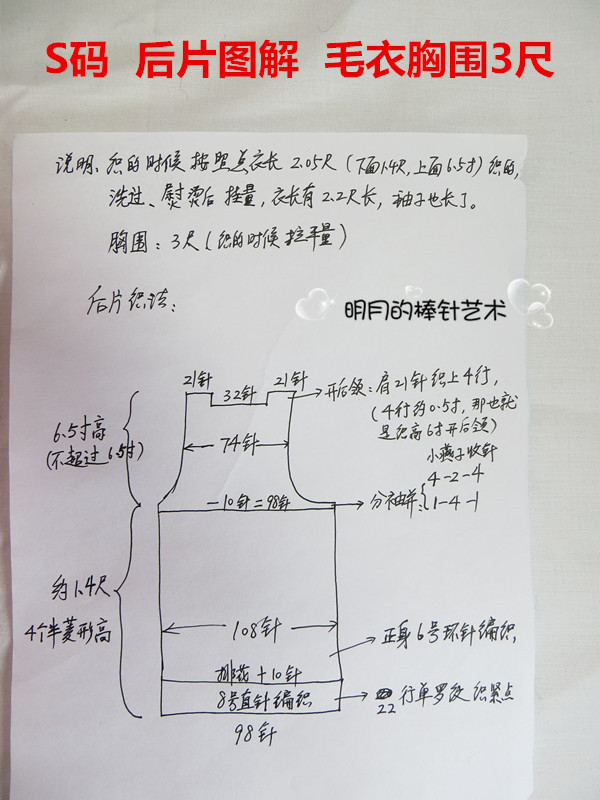 S码 后片图解 毛衣胸围3尺
说明:织的时候按照点衣长2.05尺(下面1.4尺,上面6.5寸)织的,
洗过、熨烫后挂量,衣长有2.2尺长,袖子也长了。
胸围:3尺(织的时候拉平量)
后片织法:
明月的棒针艺术
21针 32针 21针
开后领:肩21针织上4行,
(4行约0.5寸,那也就
是织高6寸开后领)
6.5寸高
(不超过6.5寸)
74针
小燕子收针
4-2-4
1-4-1
分袖笼:
-10针=98针
约1.4尺
4个半菱形高
108针
正身6号环针编织,
排花+10针
8号直针编织
22行单罗纹织紧点
98针